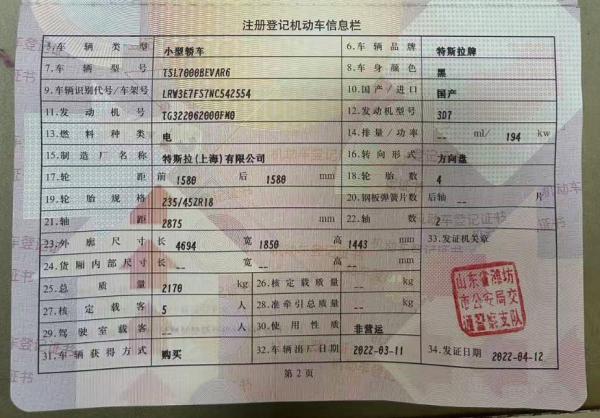 注册登记机动车信息栏
5.车辆类型 小型轿车 6.车辆品牌 特斯拉牌
7.车辆型号 TSL7000BEVAR6 8.车身颜色 黑
9.车辆识别代号/车架号 LRW3E7FS7NC542554 10.国产/进口 国产
11.发动机号 TG322062000FM0 12.发动机型号 3D7
13.燃料种类 电 14.排量/功率 -- ml/ 194 kw
15.制造厂名称 特斯拉(上海)有限公司 16.转向形式 方向盘
17.轮距 前 1580 后 1580 mm 18.轮胎数 4
19.轮胎规格 235/45ZR18 20.钢板弹簧片数 后轴 -- 片
21.轴距 2875 mm 22.轴数 2
23.外廓尺寸 长 4694 宽 1850 高 1443 mm 33.发证机关章
24.货厢内部尺寸 长 -- 宽 -- 高 -- mm
25.总质量 2170 kg 26.核定载质量 -- kg
27.核定载客 5 人 28.准牵引总质量 -- kg
29.驾驶室载客 -- 人 30.使用性质 非营运
31.车辆获得方式 购买 32.车辆出厂日期 2022-03-11 34.发证日期 2022-04-12
山东省潍坊
市公安局交
通警察支队
第2页